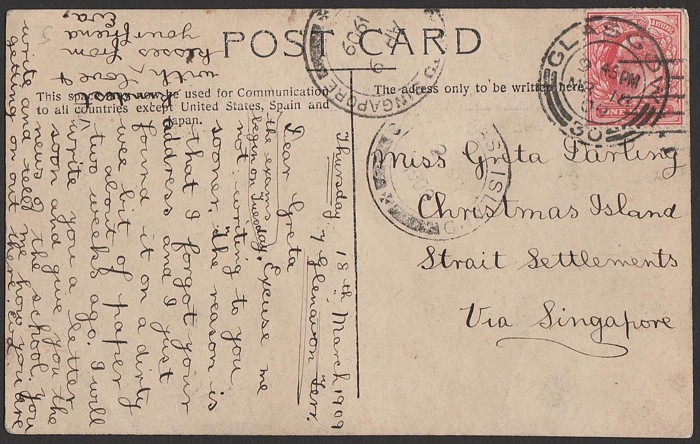 POST CARD
This space be used for Communication
to all countries except United States, Spain and
Japan.
The adress only to be written here.
Miss Greta Darling
Christmas Island
Strait Settlements
Via Singapore
Thursday 18th March 1909
7 Glenavon Terr.
Dear Greta
the exams
begin on Tuesday. Excuse me
not writing to you
sooner, the reason is
that I forgot your
address and I just
found it on a dirty
wee bit of paper
two weeks ago. I will
write you a letter
soon and give you the
news of the school. You
write and tell me how you are
getting on out there.
with love &
kisses from
your friend
Eva
GLASGOW
SINGAPORE
AP 9
1909
ONE